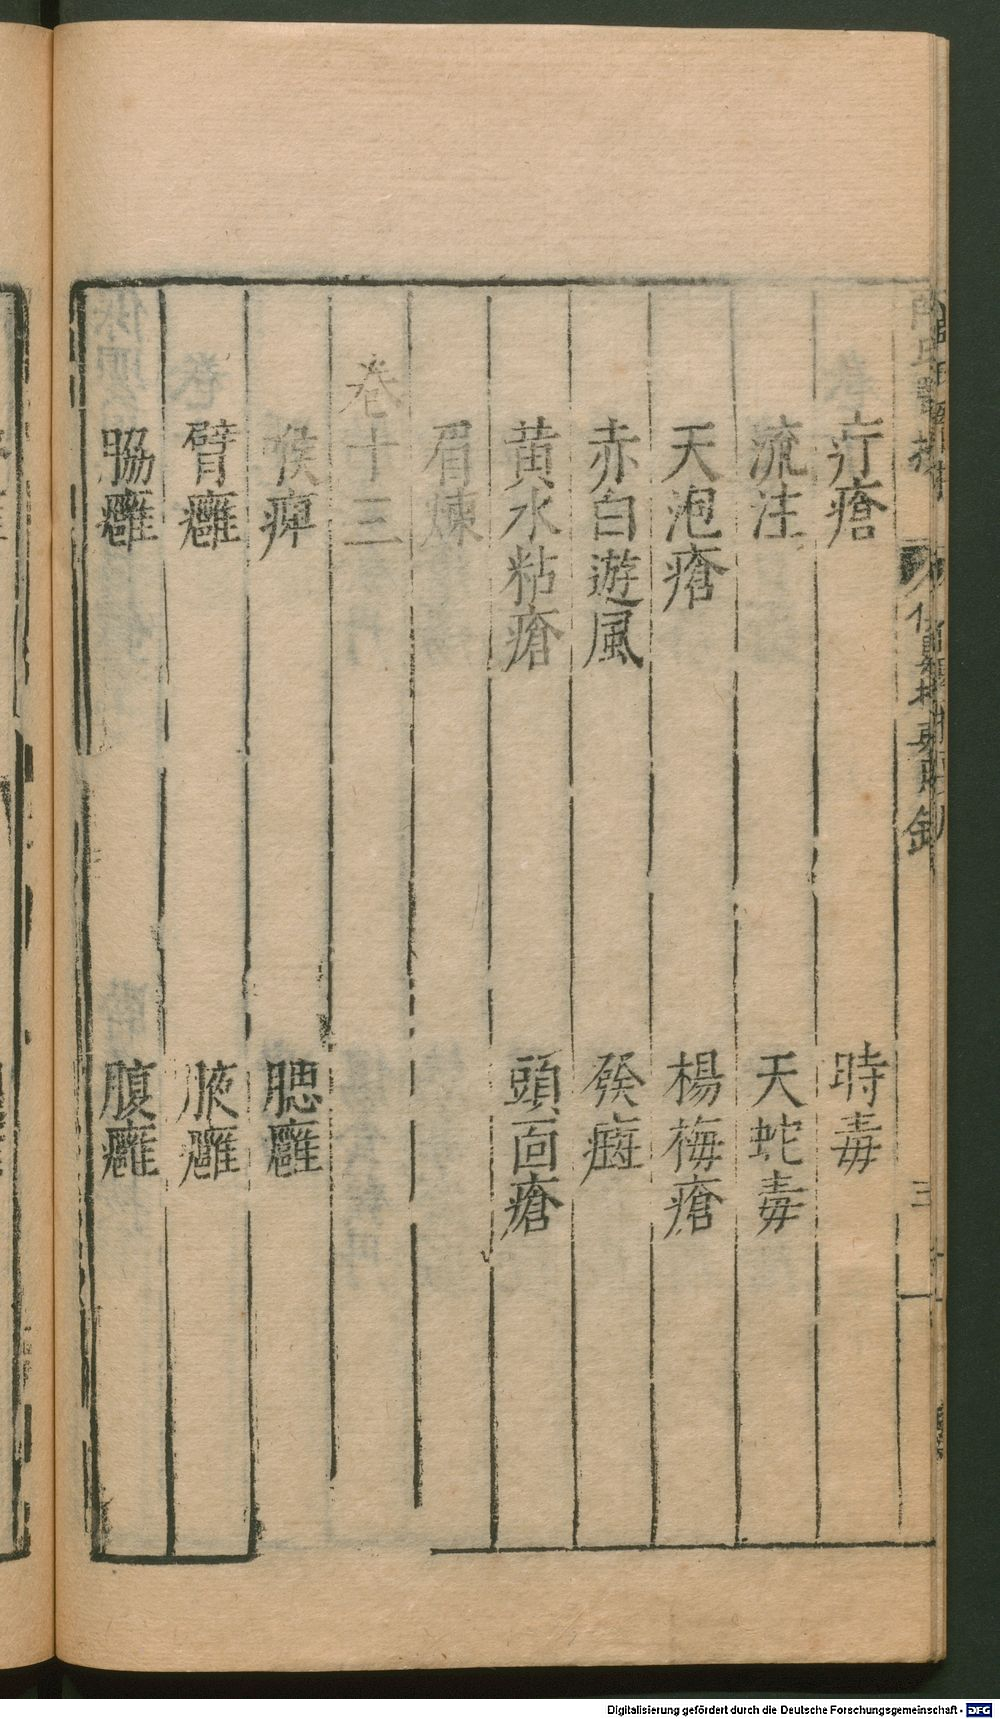 疔瘡 時毒
流注 天蛇毒
天泡瘡 楊梅瘡
赤白遊風
黃水粘瘡 頭面瘡
眉煉
卷十三
喉痺 腮癰
臂癰 腋癰
脇癰 腹癰
三
Digitalisierung gefördert durch die Deutsche Forschungsgemeinschaft - DFG